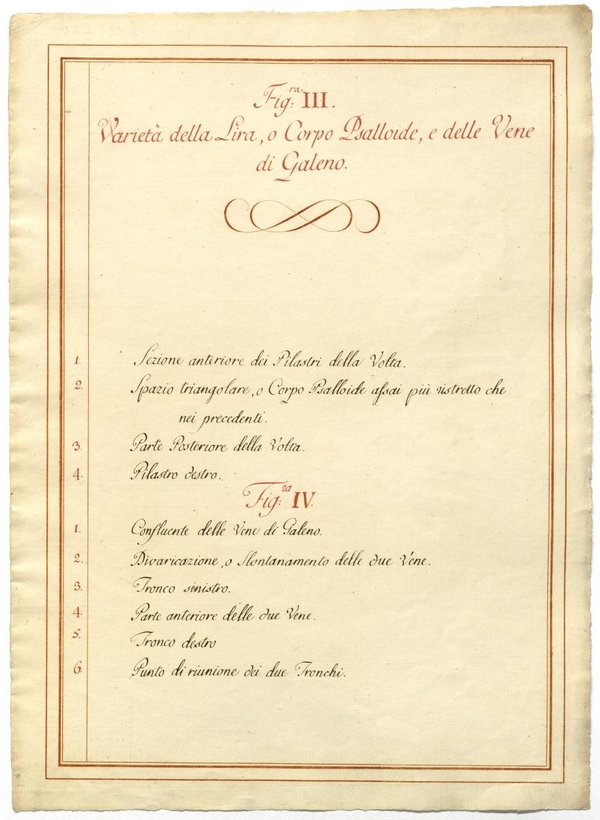 Fig.ra III.
Varietà della Lira, o Corpo Psalloide, e delle Vene
di Galeno.
1. Sezione anteriore dei Pilastri della Volta.
2. Spazio triangolare, o Corpo Psalloide assai più ristretto che
nei precedenti.
3. Parte Posteriore della Volta.
4. Pilastro destro.
Fig.ra IV.
1. Confluente delle Vene di Galeno.
2. Divaricazione, o Slontanamento delle due Vene.
3. Tronco sinistro.
4. Parte anteriore delle due Vene.
5. Tronco destro
6. Punto di riunione dei due Tronchi.